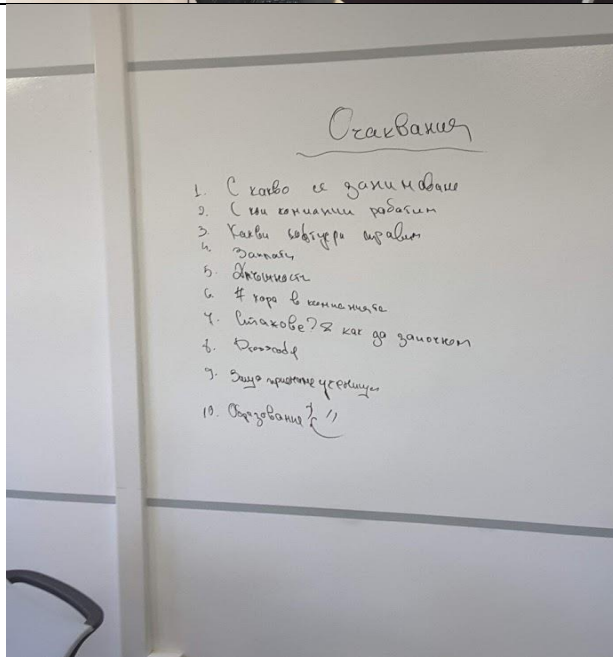 Очаквания
1. С какво се занимаваме
2. С кои компании работим
3. Какви софтуери правим
4. Заплати
5. Длъжности
6. # хора в компанията
7. Стажове? & как да започнем
8.
9. Защо приехме ученици
10. Образование